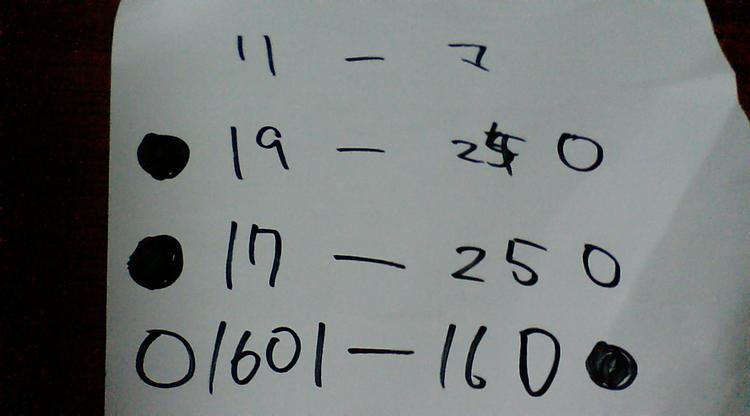 11 —
● 19 — 25 0
● 17 — 25 0
01601 — 160 ●